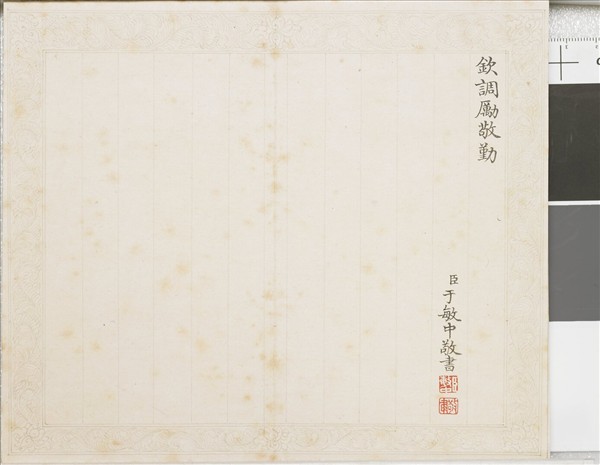 欽調勵敬勤
臣于敏中敬書